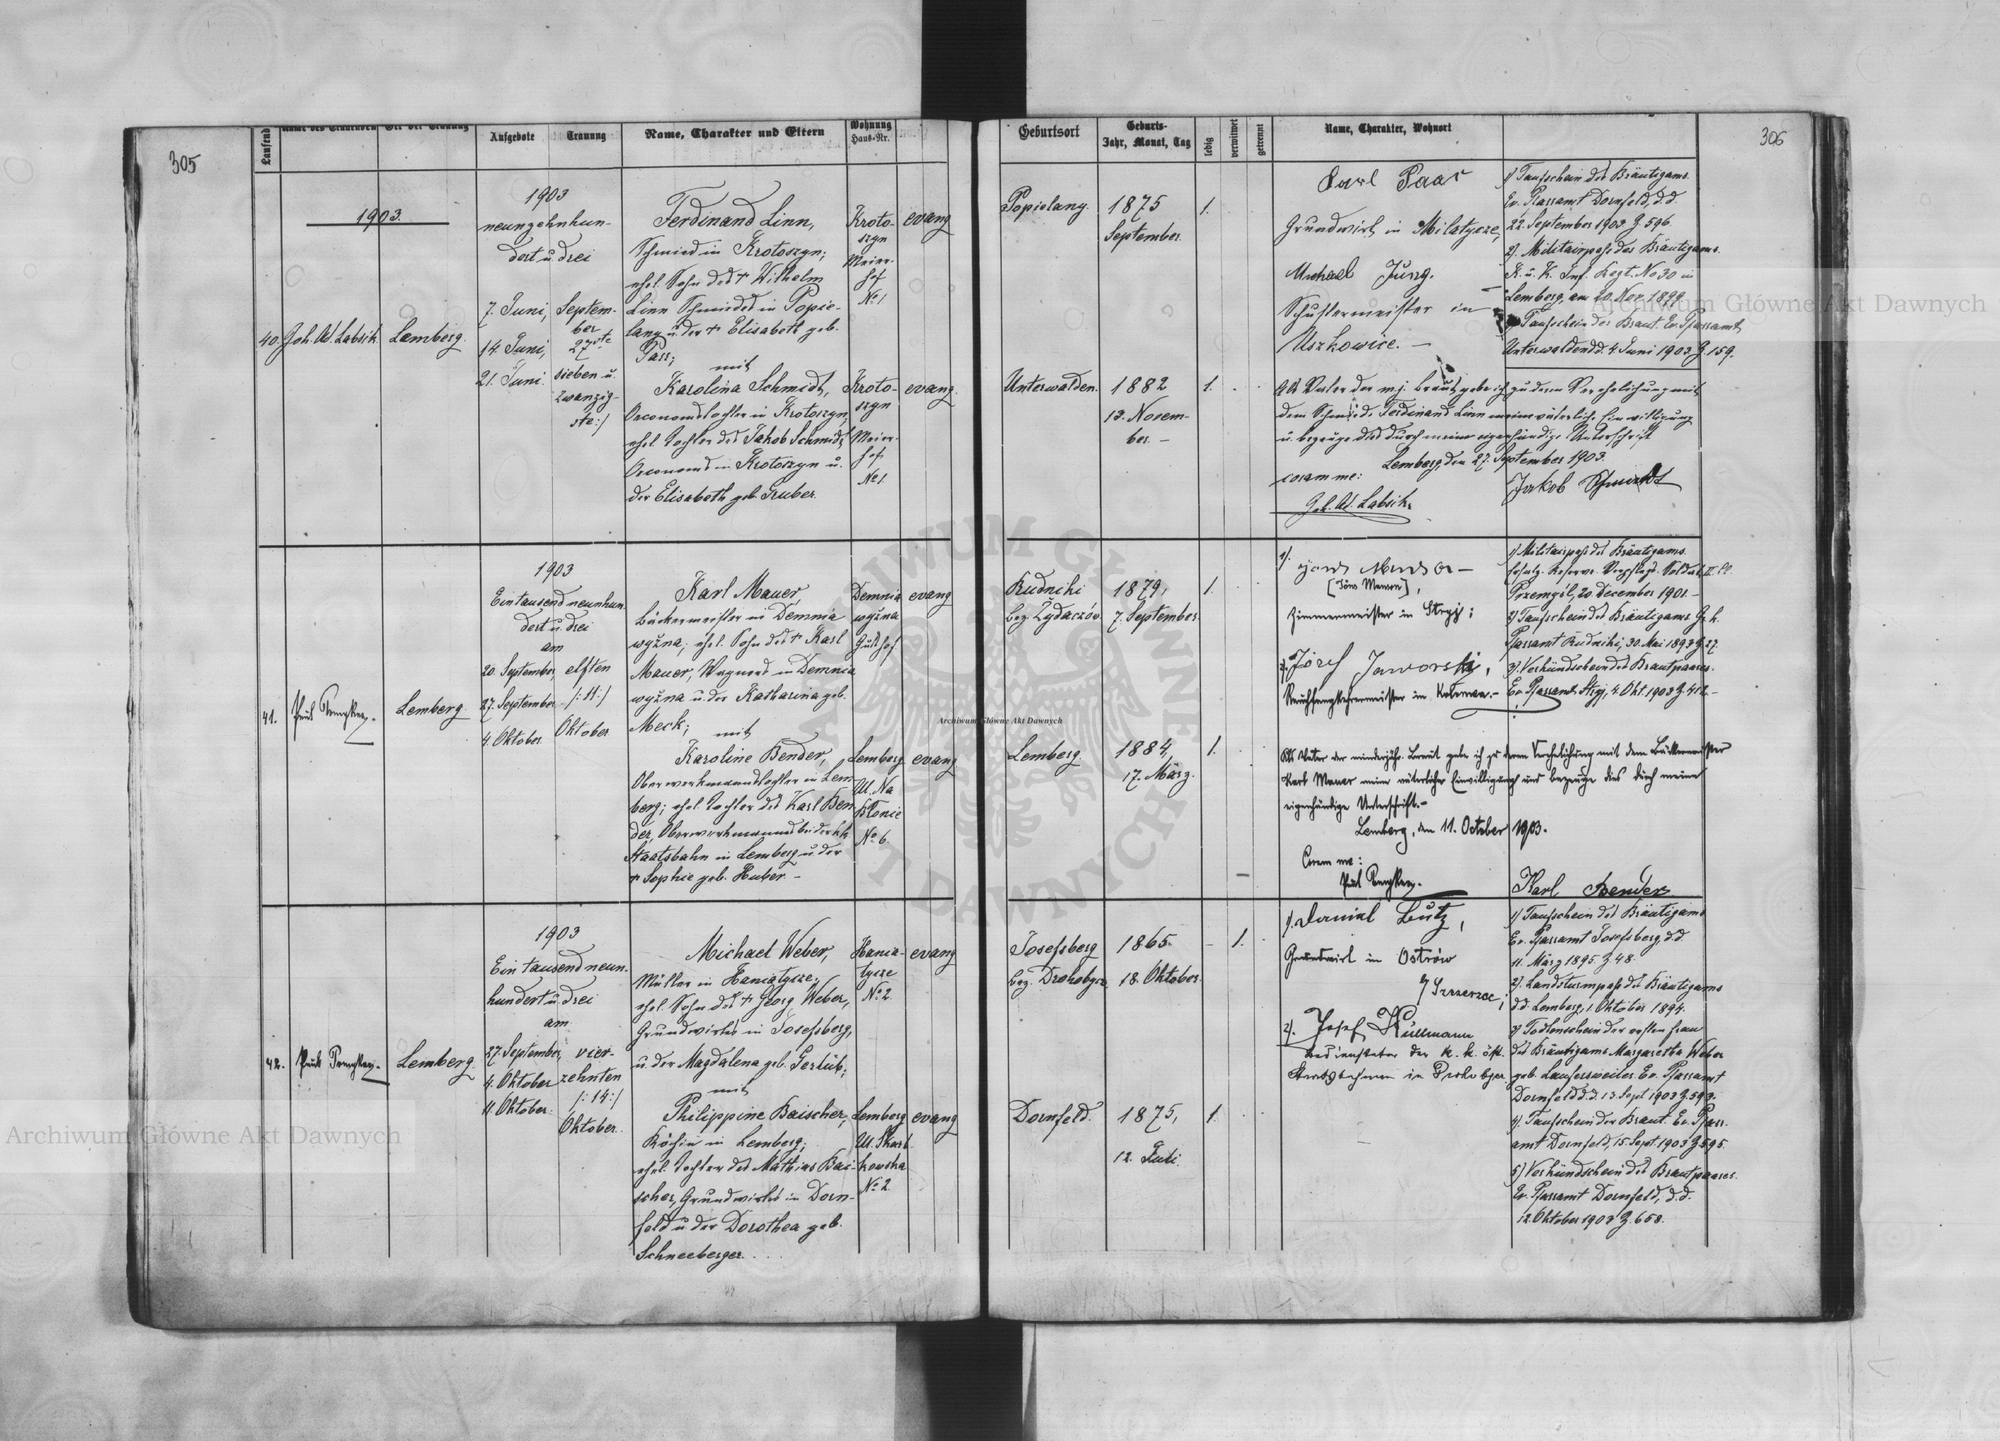 305
Laufend
Name des Trauenden
Ort der Trauung
Aufgebote
Trauung
Name, Charakter und Eltern
Wohnung
Haus-Nr.
1903
40.
Joh. Ad. Labsik
Lemberg.
1903
neunzehnhun-
dert u. drei
7. Juni,
14. Juni,
21. Juni.
Septem-
ber
27ste
sieben u.
zwanzig-
ste:/
Ferdinand Linn,
Schmied in Krotoszyn;
ehel. Sohn des † Wilhelm
Linn Schmiedes in Popie-
lany u. der † Elisabeth geb.
Pass;
mit
Karolina Schmidt,
Oeconomstochter in Krotoszyn,
ehel. Tochter des Jakob Schmidt
Oeconoms in Krotoszyn u.
der Elisabeth geb. Gruber.
Kroto-
szyn
Meier-
hof
No 1
evang
Kroto-
szyn
Meier-
hof
No 1
evang.
41.
Lemberg
1903
Eintausend neunhun-
dert u. drei
am
20. September,
27. September
4. Oktober.
elften
/:11:/
Oktober
Karl Mauer,
Bäckermeister in Demnia
wyżna, ehel. Sohn des † Karl
Mauer, Wagners in Demnia
wyżna u. der Katharina geb.
Meck;
mit
Karoline Bender,
Oberwerkmannstochter in Lem-
berg; ehel. Tochter des Karl Ben-
der, Oberwerkmanns bei der k.k.
Staatsbahn in Lemberg u. der
† Sophie geb. Huber. –
Demnia
wyżna
Gutshof
evang
Lemberg
Ul. Na
Błonie
No 6.
evang
42.
Lemberg.
1903
Ein tausend neun-
hundert u. drei
am
27. September,
4. Oktober
11. Oktober.
vier-
zehnten
/:14:/
Oktober.
Michael Weber,
Müller in Haniatycze,
ehel. Sohn des † Georg Weber,
Grundwirtes in Josefsberg,
u. der Magdalena geb. Gerlüb;
mit
Philippine Baischer,
Köchin in Lemberg;
ehel. Tochter des Mathias Bai-
scher, Grundwirtes in Dorn-
feld u. der Dorothea geb.
Schneeberger.
Hania-
tycze
No 2
evang
Lemberg
Ul. Skarb-
kowska
No 2
evang
306
Geburtsort
Geburts-
Jahr, Monat, Tag
ledig
verwitwet
getrennt
Name, Charakter, Wohnort
Popielany.
1875
September.
1.
Karl Paar
Grundwirt in Milatycze,
Michael Jung.
Schustermeister in
Uszkowice. –
1) Taufschein des Bräutigams.
Ev. Pfarramt Dornfeld, d.d.
22. September 1903 Z. 596.
2). Militairpass des Bräutigams.
K. u. K. Inf. Regt. No 30 in
Lemberg, am 20. Nov. 1899
3) Taufschein der Braut. Ev. Pfarramt
Unterwalden d.d. 4. Juni 1903 Z. 159.
Unterwalden.
1882
13. Novem-
ber. –
1.
Als Vater der mj. Braut gebe ich zu deren Verehelichung mit
dem Schmiede Ferdinand Linn meine väterliche Einwilligung
u. bezeuge dies durch meine eigenhändige Unterschrift
Lemberg, den 27. September 1903.
coram me:
Joh. Ad. Labsik.
Jakob Schmidt
Rudniki
bez. Żydaczów
1879,
7. September.
1.
1).
Zimmermeister in Stryj;
2). Józef Jaworski,
1) Militairpass des Bräutigams.
Przemyśl, 20. December 1901. –
2) Taufschein des Bräutigams Gr. k.
Pfarramt Rudniki, 30. Mai 1893 Z. 27.
3). Verkündschein des Brautpaares.
Ev. Pfarramt Stryj, 4. Okt. 1903 Z. 412. –
Lemberg.
1884,
17. März.
1.
Als Vater der minderjähr. Braut gebe ich zu deren Verehelichung mit dem Bäckermeister
Karl Mauer meine väterliche Einwilligung und bezeuge dies durch meine
eigenhändige Unterschrift. –
Lemberg, den 11. October 1903.
Coram me:
Karl Bender
Josefsberg
bez. Drohobycz
1865.
18. Oktober.
1.
1). Daniel Butz,
Grundwirt in Ostrów
b/ Szczerzec;
2). Josef Kullmann
Bediensteter der k. k. öst.
Staatsbahnen in Drohobycz
1) Taufschein des Bräutigams
Ev. Pfarramt Josefsberg d.d.
11. März 1895 Z. 48.
2). Landsturmpass des Bräutigams
d.d. Lemberg, 1. Oktober 1894.
3) Todtenschein der ersten Frau
des Bräutigams Margaretha Weber
geb. Laufersweiler Ev. Pfarramt
Dornfeld d.d. 13. Sept. 1903 Z. 593.
4). Taufschein der Braut. Ev. Pfarr-
amt Dornfeld, 15. Sept. 1903 Z. 595.
5) Verkündschein des Brautpaares.
Ev. Pfarramt Dornfeld, d.d.
12. Oktober 1903 Z. 658.
Dornfeld.
1875,
12. Juli.
1.
Archiwum Główne Akt Dawnych
Archiwum Główne Akt Dawnych
Archiwum Główne Akt Dawnych
ARCHIWUM GŁÓWNE AKT DAWNYCH